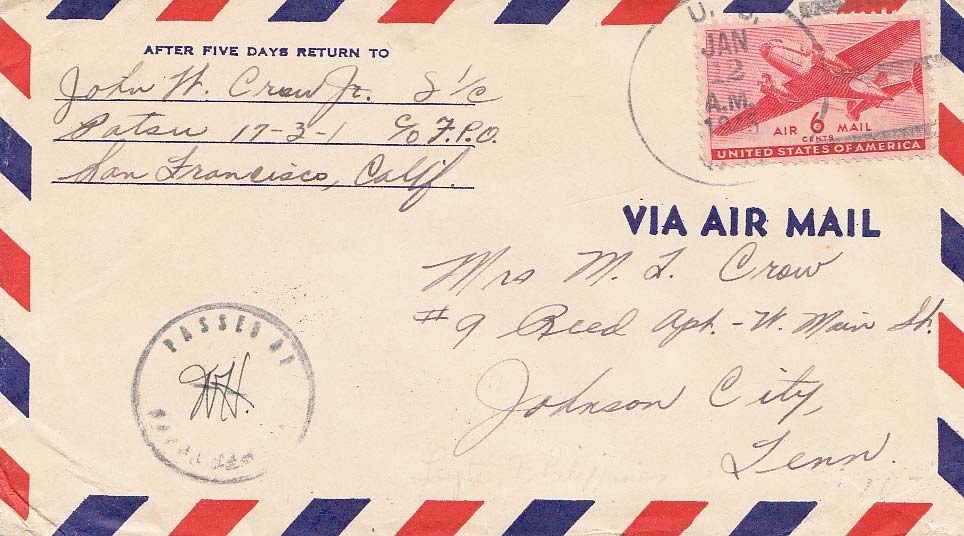 AFTER FIVE DAYS RETURN TO
John W. Crow Jr. S 1/c
Patsu 17-3-1 c/o F.P.O.
San Francisco, Calif.
U. S.
JAN
12
A.M.
AIR 6 MAIL
CENTS
UNITED STATES OF AMERICA
VIA AIR MAIL
Mrs M. L. Crow
#9 Reed Apt. - W. Main St.
Johnson City,
Tenn.
PASSED BY